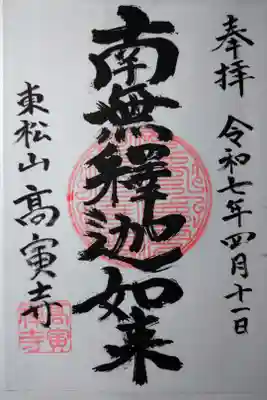 奉拝 令和七年四月十一日
南無釋迦如来
東松山 高寅寺